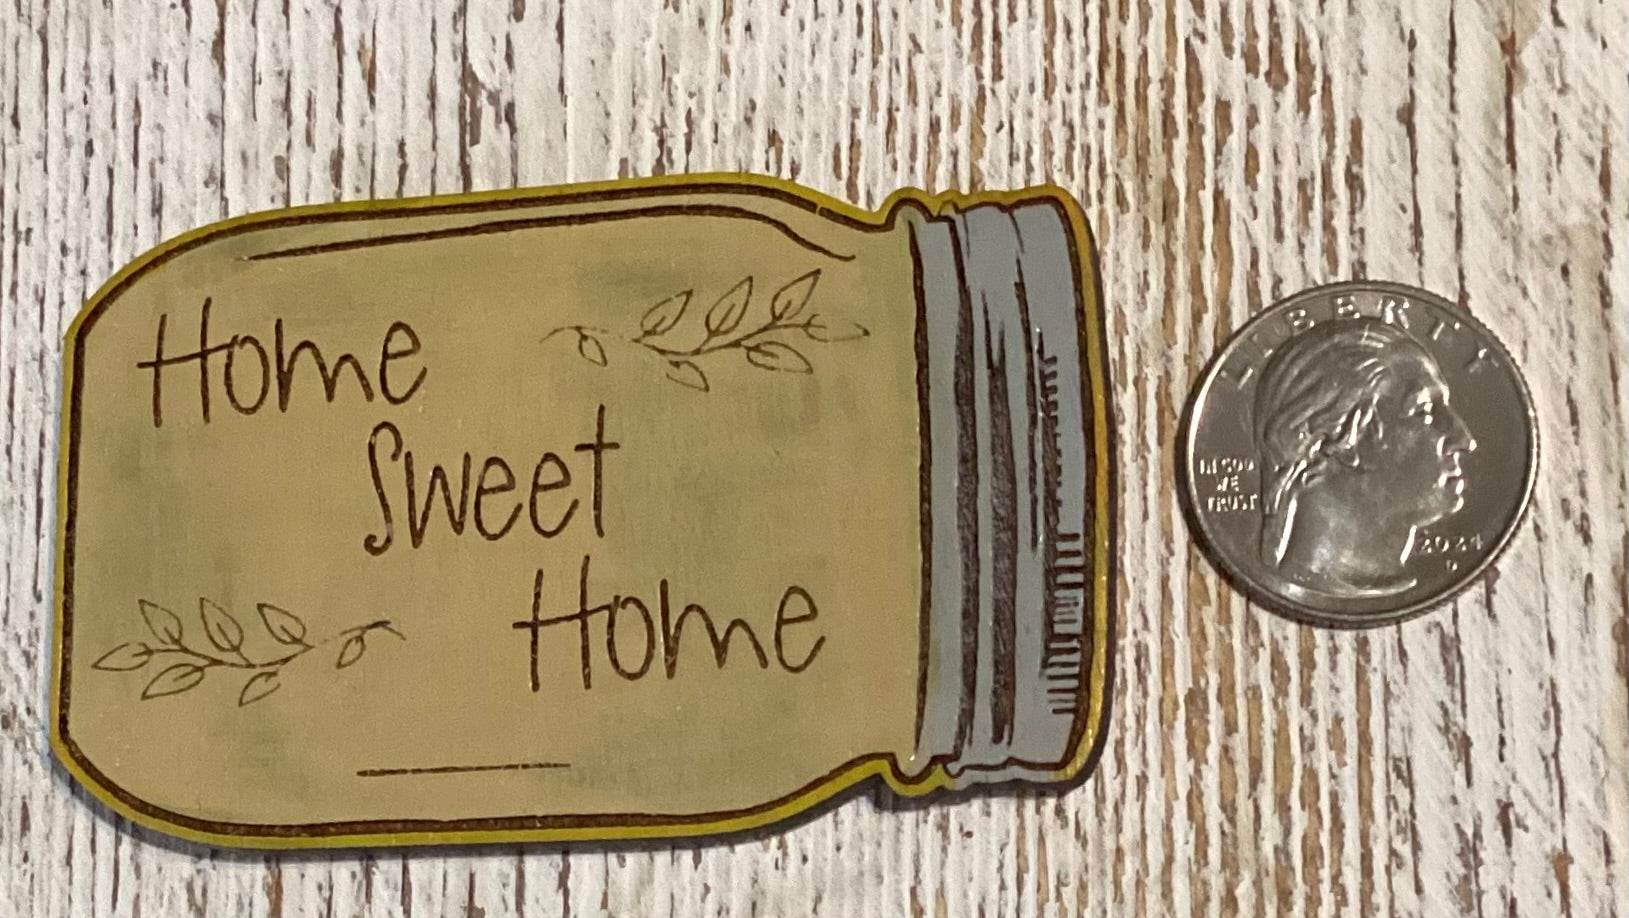 Home
Sweet
Home
LIBERTY
IN GOD
WE
TRUST
2024
D